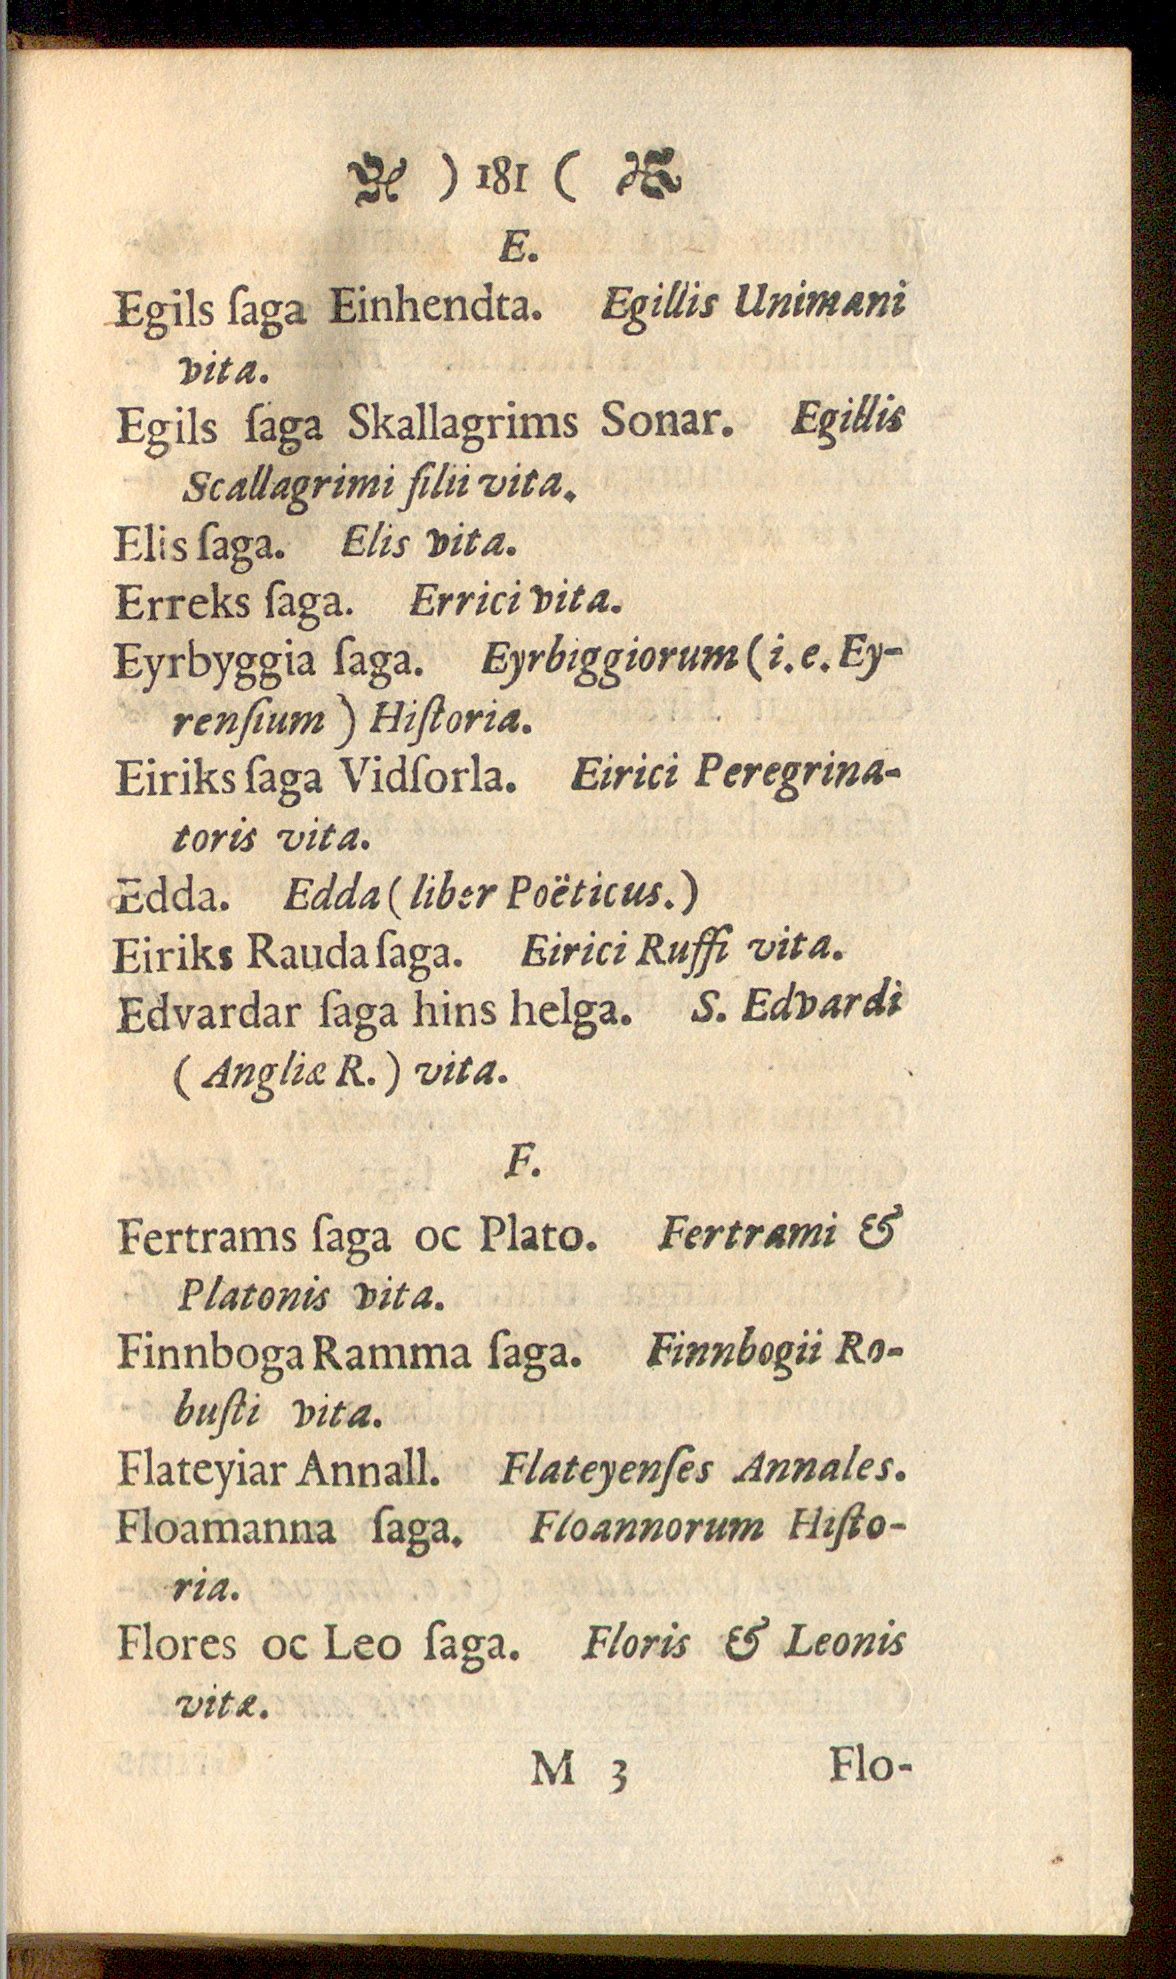 ) 181 (
E.
Egils ſaga Einhendta. Egillis Unimani
vita.
Egils ſaga Skallagrims Sonar. Egillis
Scallagrimi filii vita.
Elis ſaga. Elis vita.
Erreks ſaga. Errici vita.
Eyrbyggia ſaga. Eyrbiggiorum (i.e. Ey-
renſium) Hiſtoria.
Eiriks ſaga Vidſorla. Eirici Peregrina-
toris vita.
Edda. Edda (liber Poëticus.)
Eiriks Rauda ſaga. Eirici Ruffi vita.
Edvardar ſaga hins helga. S. Edvardi
(Angliæ R.) vita.
F.
Fertrams ſaga oc Plato. Fertrami &
Platonis vita.
Finnboga Ramma ſaga. Finnbogii Ro-
buſti vita.
Flateyiar Annall. Flateyenſes Annales.
Floamanna ſaga. Floannorum Hiſto-
ria.
Flores oc Leo ſaga. Floris & Leonis
vitæ.
M 3 Flo-